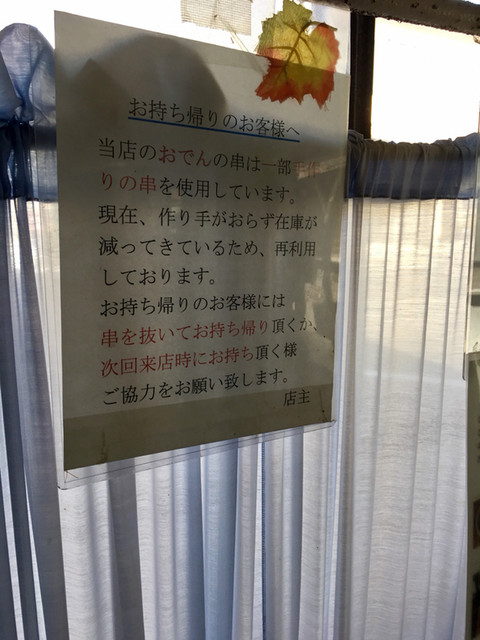 お持ち帰りのお客様へ
当店のおでんの串は一部手作
りの串を使用しています。
現在、作り手がおらず在庫が
減ってきているため、再利用
しております。
お持ち帰りのお客様には
串を抜いてお持ち帰り頂くか、
次回来店時にお持ち頂く様
ご協力をお願い致します。
店主